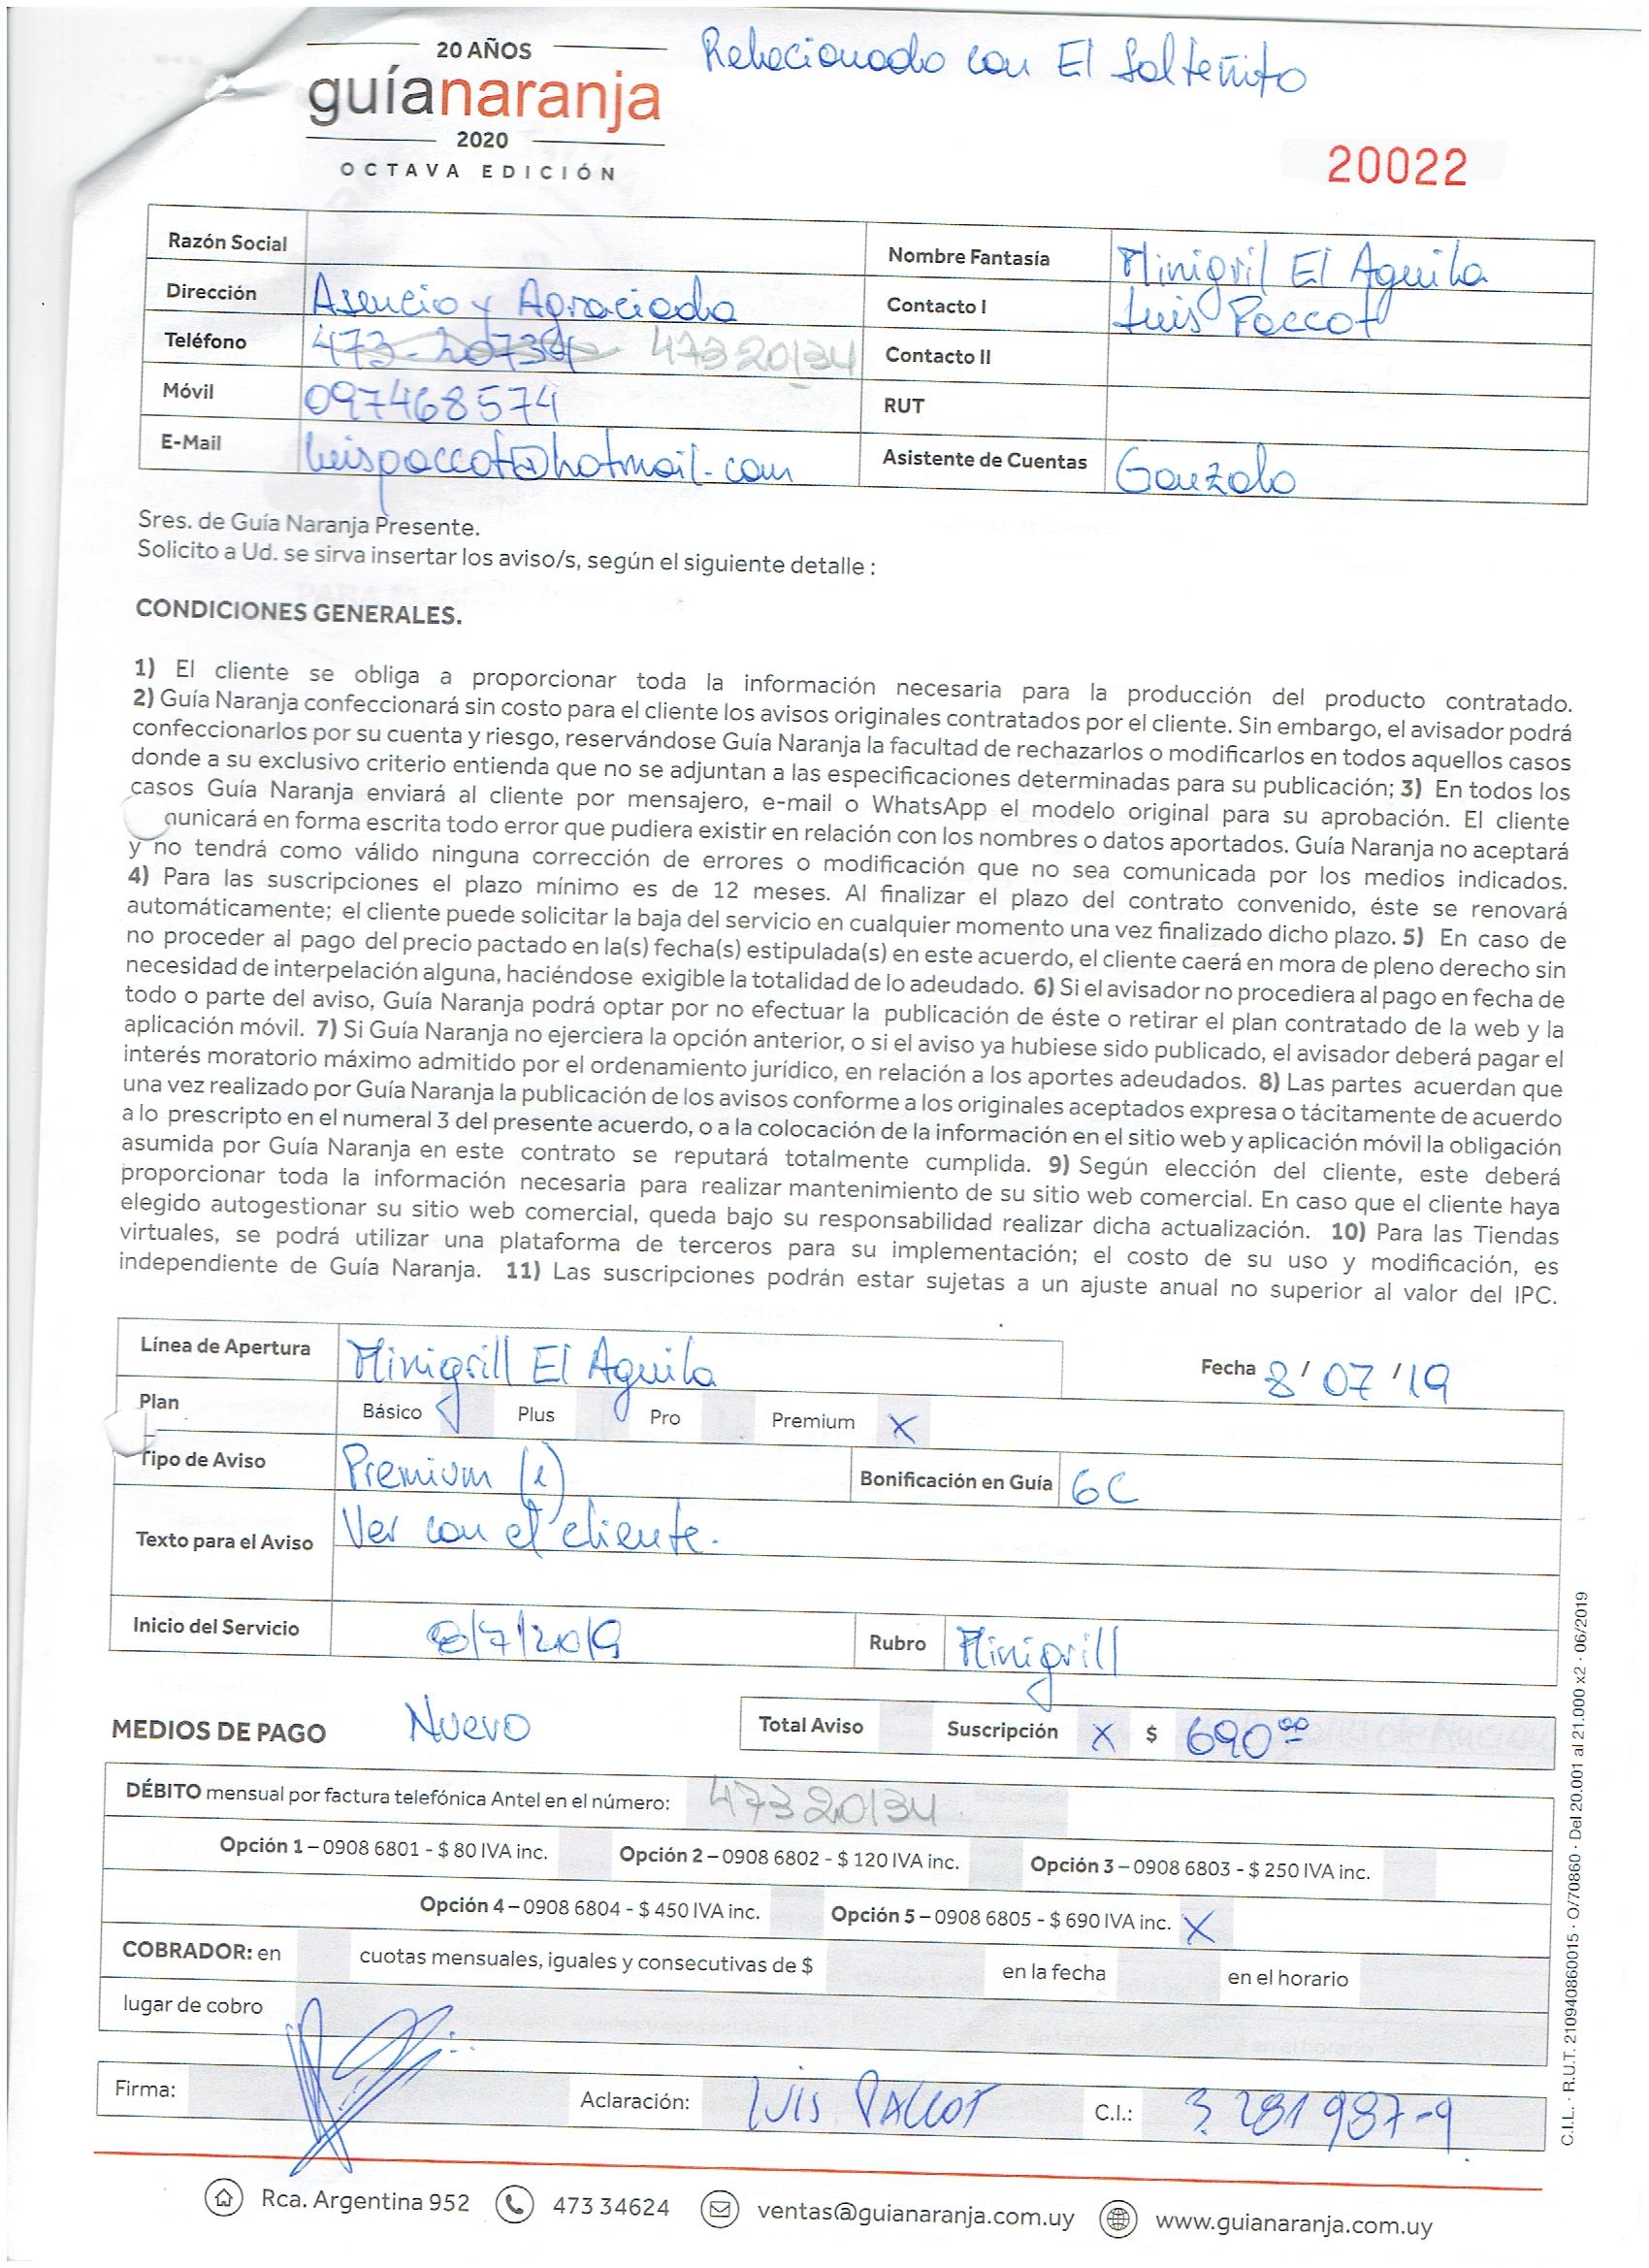 20 AÑOS
guíanaranja
2020
OCTAVA EDICIÓN
Relacionado con El Salteñito
20022
Razón Social
Nombre Fantasía Minigril El Aguila
Dirección Asencio y Agraciada
Contacto I Luis Paccot
Teléfono 473-20734 47320134
Contacto II
Móvil 097468574
RUT
E-Mail luispaccot@hotmail.com
Asistente de Cuentas Gonzalo
Sres. de Guía Naranja Presente.
Solicito a Ud. se sirva insertar los aviso/s, según el siguiente detalle :
CONDICIONES GENERALES.
1) El cliente se obliga a proporcionar toda la información necesaria para la producción del producto contratado.
2) Guía Naranja confeccionará sin costo para el cliente los avisos originales contratados por el cliente. Sin embargo, el avisador podrá
confeccionarlos por su cuenta y riesgo, reservándose Guía Naranja la facultad de rechazarlos o modificarlos en todos aquellos casos
donde a su exclusivo criterio entienda que no se adjuntan a las especificaciones determinadas para su publicación; 3) En todos los
casos Guía Naranja enviará al cliente por mensajero, e-mail o WhatsApp el modelo original para su aprobación. El cliente
unicará en forma escrita todo error que pudiera existir en relación con los nombres o datos aportados. Guía Naranja no aceptará
y no tendrá como válido ninguna corrección de errores o modificación que no sea comunicada por los medios indicados.
4) Para las suscripciones el plazo mínimo es de 12 meses. Al finalizar el plazo del contrato convenido, éste se renovará
automáticamente; el cliente puede solicitar la baja del servicio en cualquier momento una vez finalizado dicho plazo. 5) En caso de
no proceder al pago del precio pactado en la(s) fecha(s) estipulada(s) en este acuerdo, el cliente caerá en mora de pleno derecho sin
necesidad de interpelación alguna, haciéndose exigible la totalidad de lo adeudado. 6) Si el avisador no procediera al pago en fecha de
todo o parte del aviso, Guía Naranja podrá optar por no efectuar la publicación de éste o retirar el plan contratado de la web y la
aplicación móvil. 7) Si Guía Naranja no ejerciera la opción anterior, o si el aviso ya hubiese sido publicado, el avisador deberá pagar el
interés moratorio máximo admitido por el ordenamiento jurídico, en relación a los aportes adeudados. 8) Las partes acuerdan que
una vez realizado por Guía Naranja la publicación de los avisos conforme a los originales aceptados expresa o tácitamente de acuerdo
a lo prescripto en el numeral 3 del presente acuerdo, o a la colocación de la información en el sitio web y aplicación móvil la obligación
asumida por Guía Naranja en este contrato se reputará totalmente cumplida. 9) Según elección del cliente, este deberá
proporcionar toda la información necesaria para realizar mantenimiento de su sitio web comercial. En caso que el cliente haya
elegido autogestionar su sitio web comercial, queda bajo su responsabilidad realizar dicha actualización. 10) Para las Tiendas
virtuales, se podrá utilizar una plataforma de terceros para su implementación; el costo de su uso y modificación, es
independiente de Guía Naranja. 11) Las suscripciones podrán estar sujetas a un ajuste anual no superior al valor del IPC.
Línea de Apertura Minigrill El Aguila
Fecha 8/ 07 /19
Plan Básico Plus Pro Premium X
Tipo de Aviso Premium (1)
Bonificación en Guía 6C
Texto para el Aviso Ver con el cliente.
Inicio del Servicio 8/7/2019
Rubro Minigrill
MEDIOS DE PAGO Nuevo
Total Aviso Suscripción X $ 690,00
DÉBITO mensual por factura telefónica Antel en el número: 47320134
Opción 1 – 0908 6801 - $ 80 IVA inc. Opción 2 – 0908 6802 - $ 120 IVA inc. Opción 3 – 0908 6803 - $ 250 IVA inc.
Opción 4 – 0908 6804 - $ 450 IVA inc. Opción 5 – 0908 6805 - $ 690 IVA inc. X
COBRADOR: en cuotas mensuales, iguales y consecutivas de $ en la fecha en el horario
lugar de cobro
Firma: Aclaración: LUIS PACCOT C.I.: 3.281987-9
C.I.L. · R.U.T. 210940860015 · O/70860 · Del 20.001 al 21.000 x2 · 06/2019
Rca. Argentina 952 473 34624 ventas@guianaranja.com.uy www.guianaranja.com.uy